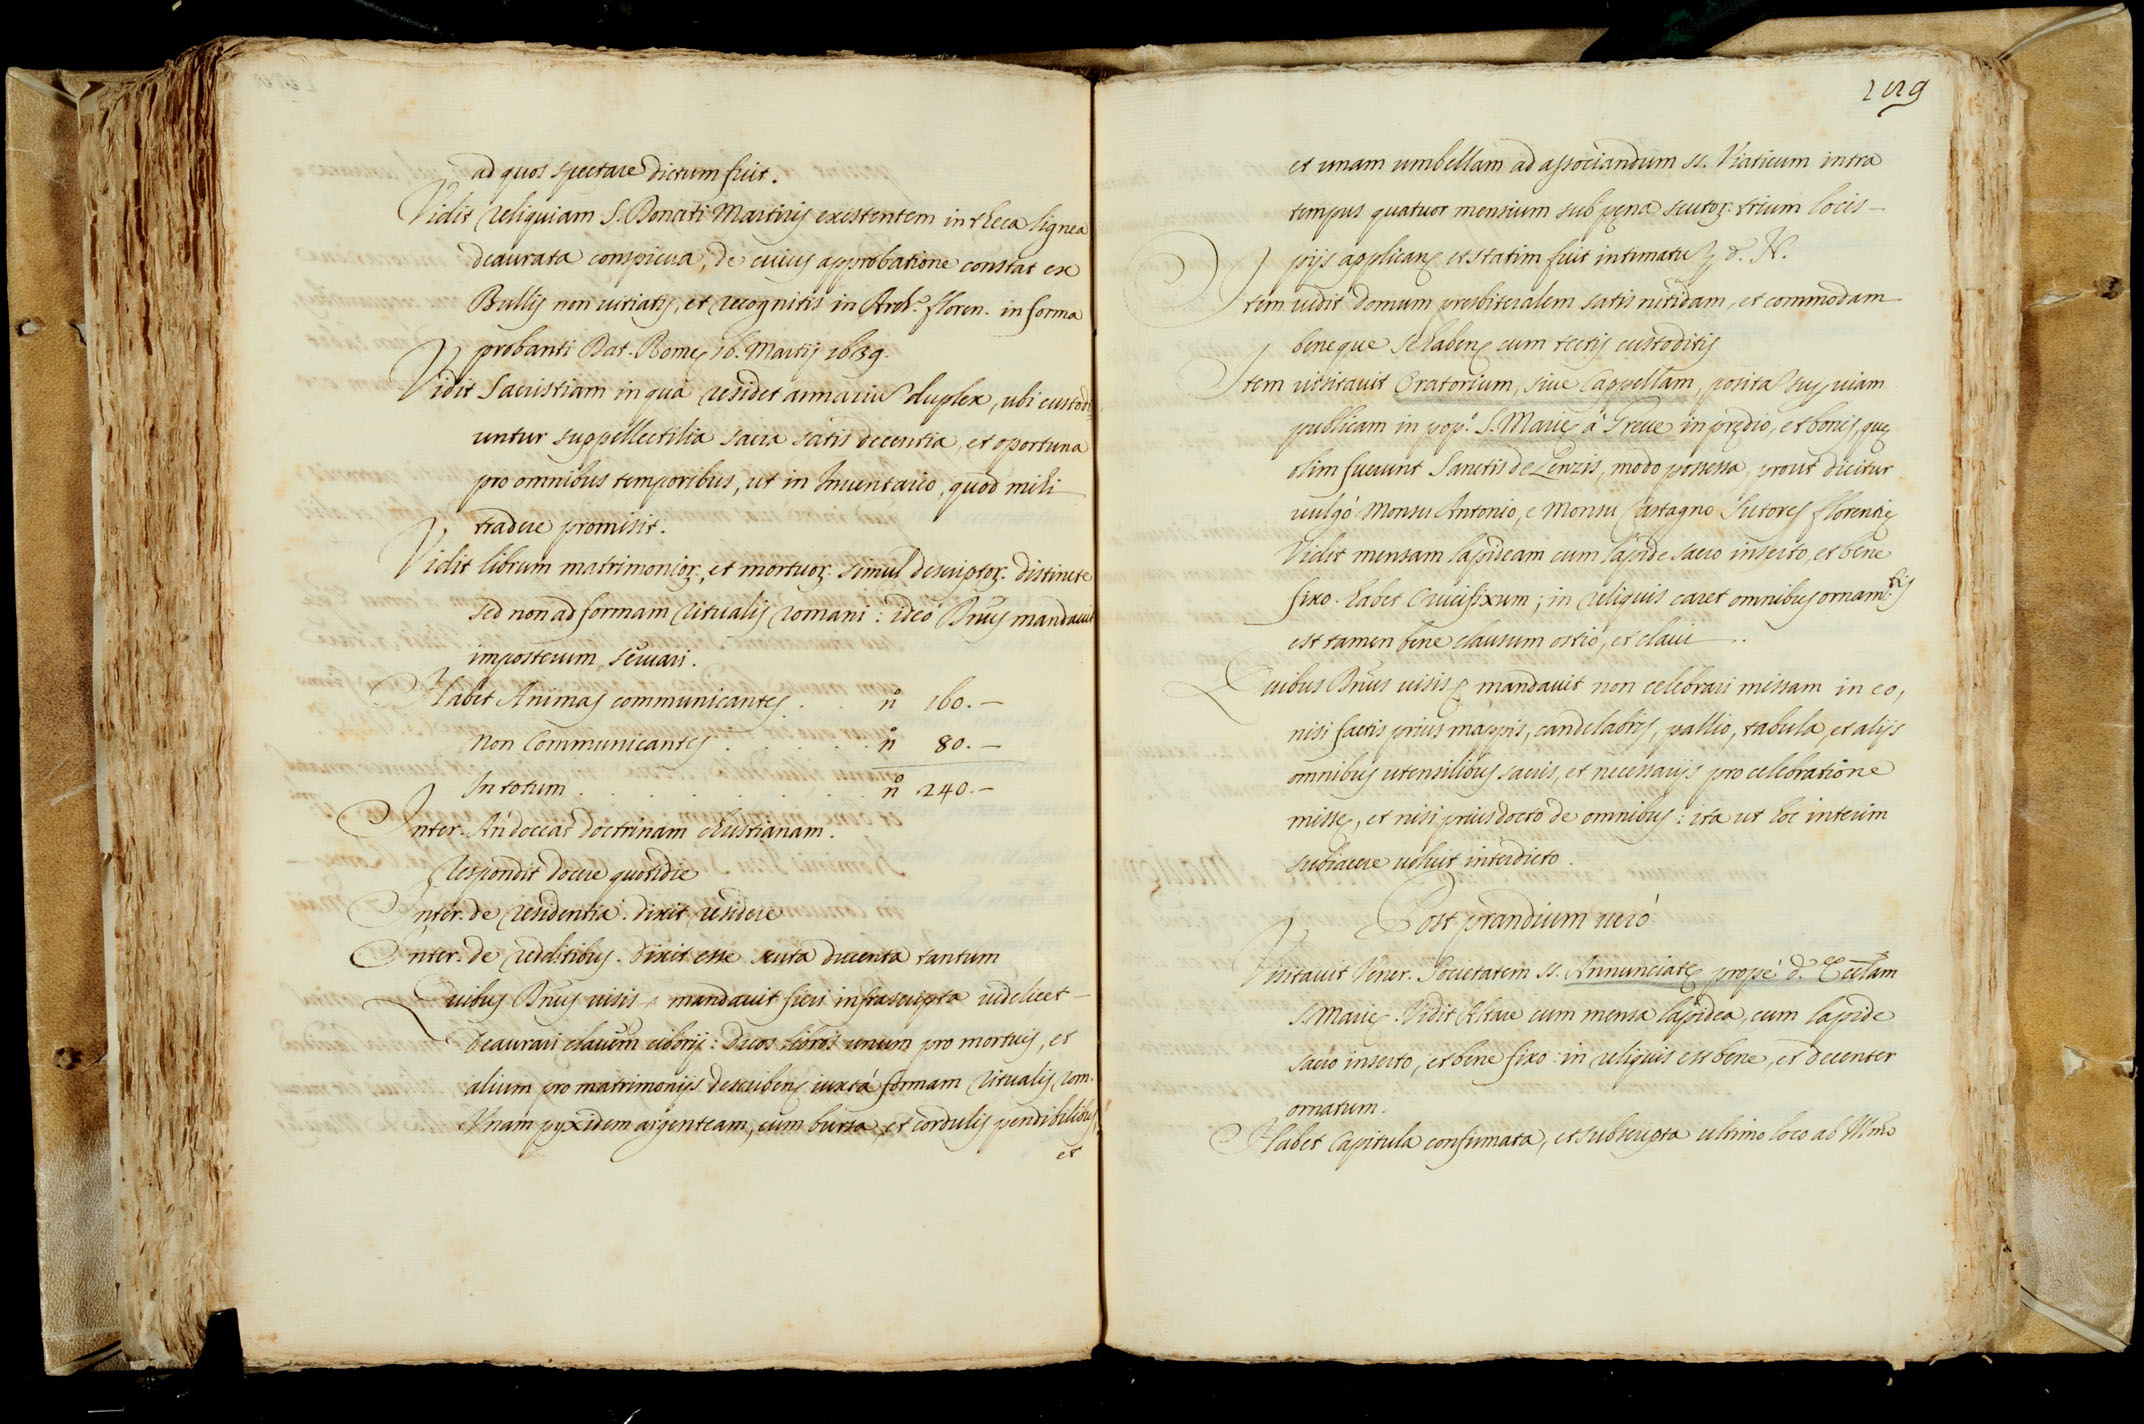 ad quos spectare dictum fuit.
Vidit reliquiam S. Donati Martiris existentem in theca lignea
deaurata conspicua, de cuius approbatione constat ex
Bullis non vitiatis, et recognitis in Arch.o floren. in forma
probanti Dat. Romę 16. Martij 1639.
Vidit Sacristiam in qua residet armariũ duplex, ubi custodi
untur suppellectilia sacra satis decentia, et oportuna
pro omnibus temporibus, ut in Inventario, quod mihi
tradere promisit.
Vidit librum matrimonioꝝ, et mortuoꝝ simul descriptoꝝ distincte
sed non ad formam ritualis romani: ideò Dñus mandavit
imposterum servari.
Habet Animas communicantes . . . nº 160. —
Non Communicantes . . . . . nº 80. —
In totum . . . . . . . nº 240. —
Inter. An doceat doctrinam christianam.
respondit docere quotidie
Inter. de residentia. dixit residere
Inter. de redditibus. dixit esse scuta ducenta tantum
Quibus Dñus visis mandavit fieri infrascripta videlicet —
deaurari clavem ciborij: Duos libros unum pro mortuis, et
alium pro matrimonijs describenꝭ iuxtà formam ritualis rom.
Unam pyxidem argenteam, cum bursa, et cordulis pendibilibus,
et
et unam umbellam ad associandum ss. Viaticum intra
tempus quatuor mensium sub pęna scutoꝝ trium locis —
pijs applicanꝭ et statim fuit intimatũ d. N.
Item vidit domum presbiteralem satis nitidam, et commodam
beneque se habenꝭ cum tectis custoditis
Item visitavit Oratorium, sive Cappellam, positã sup viam
publicam in pop.º S. Marię à Greve in prędio, et bonis, quę
olim fuerunt Sanctis de Lenzis, modo possessa, prout dicitur
vulgò Monsu Antonio, e Monsu Castagno Sutores florentię
Vidit mensam lapideam cum lapide sacro inserto, et bene
fixo. habet Crucifixum; in reliquis caret omnibus ornam.tis
est tamen bene clausum ostio, et clavi —
Quibus Dñus visis mandavit non celebrari missam in eo,
nisi factis prius mappis, candelabris, pallio, tabula, et alijs
omnibus utensilibus sacris, et necessarijs pro celebratione
missę, et nisi prius docto de omnibus: ita ut hoc interim
subiacere voluit interdicto.
Post prandium verò
Visitavit Vener. Societatem ss. Annunciatę propè d. Eccłam
S. Marię. Vidit Altare cum mensa lapidea, cum lapide
sacro inserto, et bene fixo: in reliquis est bene, et decenter
ornatum.
Habet Capitula confirmata, et subscripta ultimo loco ab Ill.mo